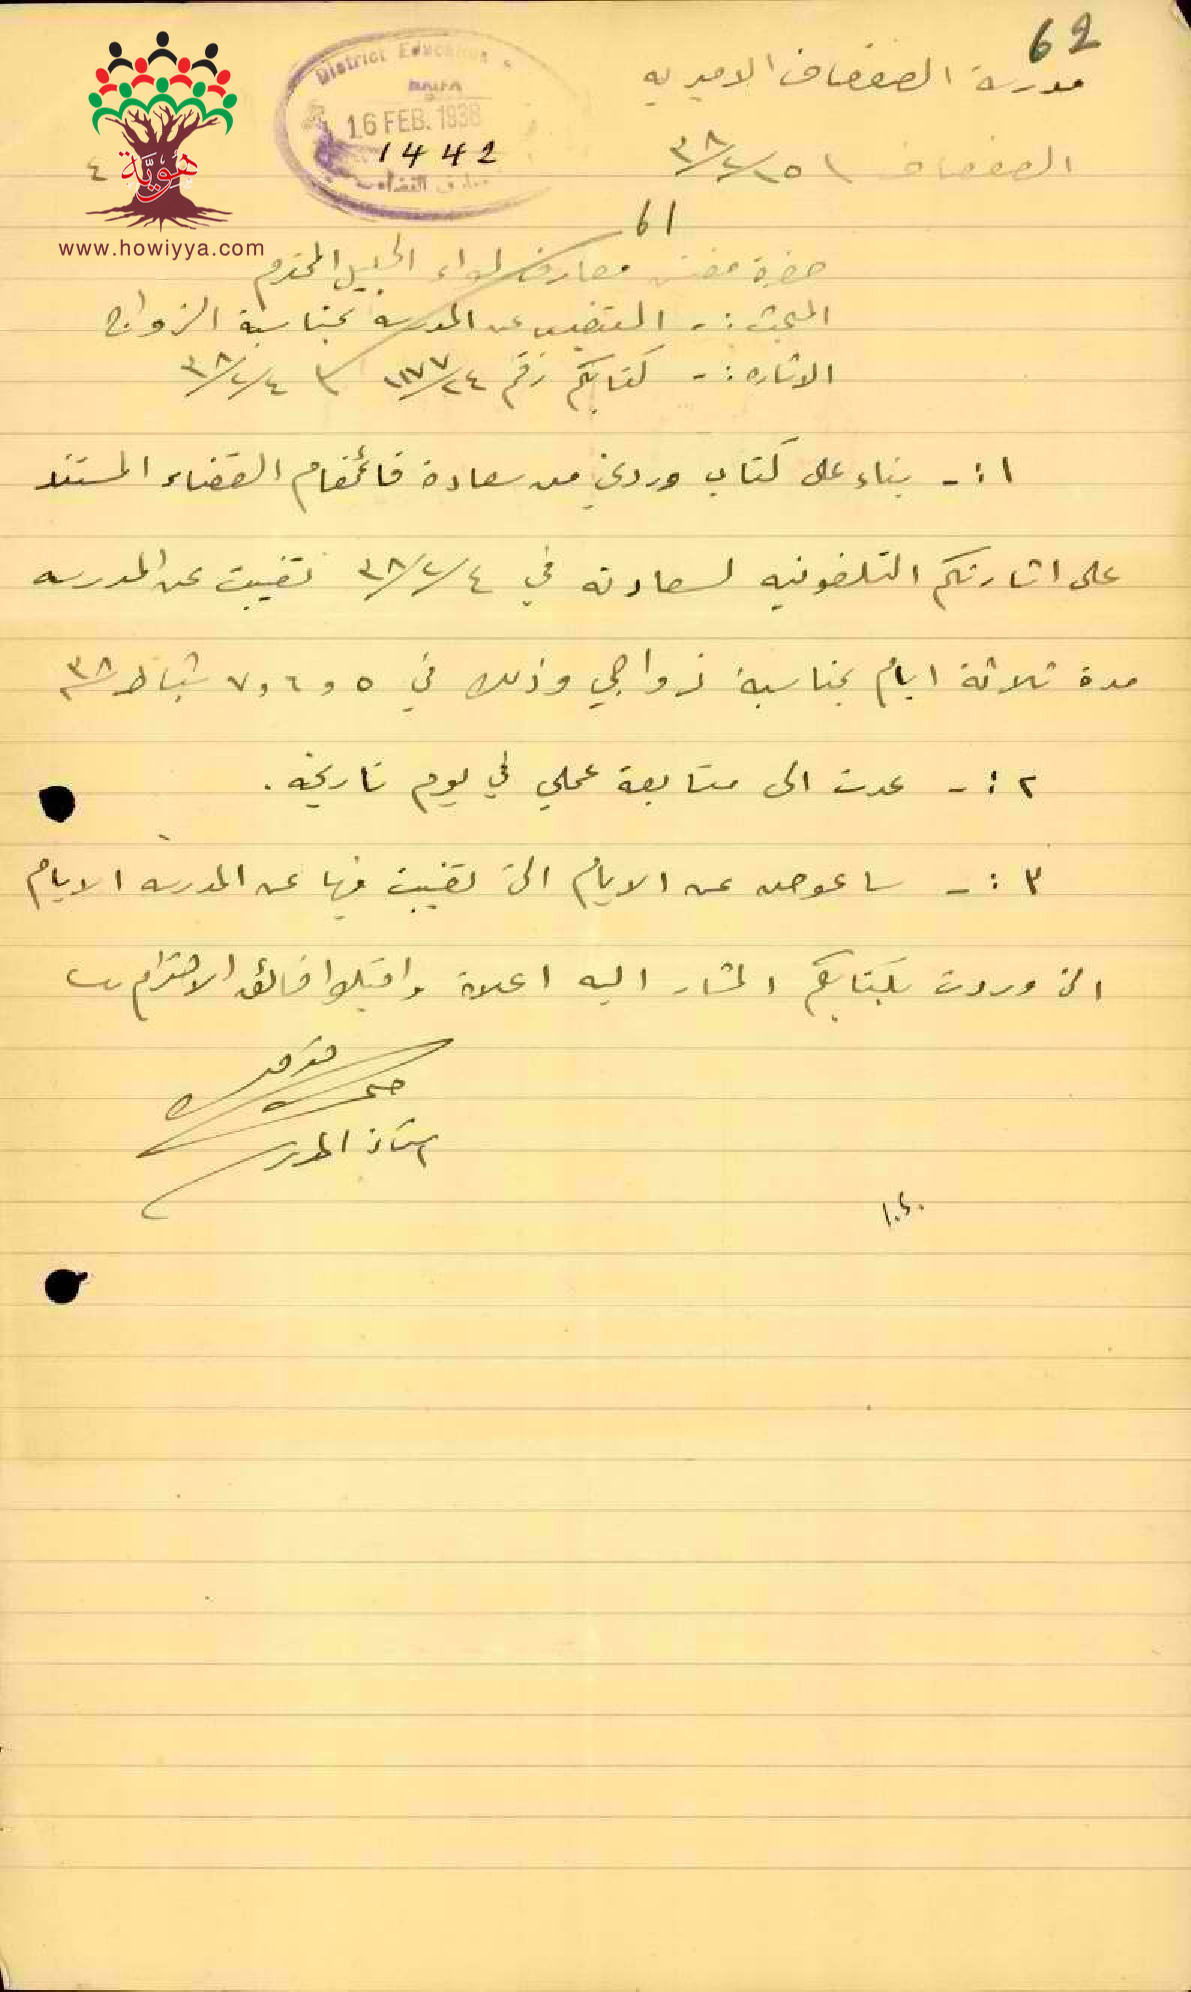 62
مدرسة الصفصاف الاميريه
District Education
HAIFA
16 FEB. 1938
1442
الصفصاف ١٥/٢/٣٨
٤
هُوِيَّة
www.howiyya.com
61
حضرة مفتش معارف لواء الجليل المحترم
المبحث :- التغيب عن المدرسه بمناسبة الزواج
الاشاره :- كتابكم رقم ٢٤/١١٧٧ ٤/٢/٣٨
١ :- بناء على كتاب وردني من سعادة قائمقام القضاء المستند
على اشارتكم التلفونيه لسعادته في ٤/٢/٣٨ تغيبت عن المدرسه
مدة ثلاثة ايام بمناسبة زواجي وذلك في ٥ و ٦ و ٧ شباط ٣٨
٢ :- عدت الى متابعة عملي في يوم تاريخه .
٣ :- ساعوض عن الايام التي تغيبت فيها عن المدرسه الايام
التي وردت بكتابكم المشار اليه اعلاه واقبلوا فائق الاحترام
استاذ المدرسه